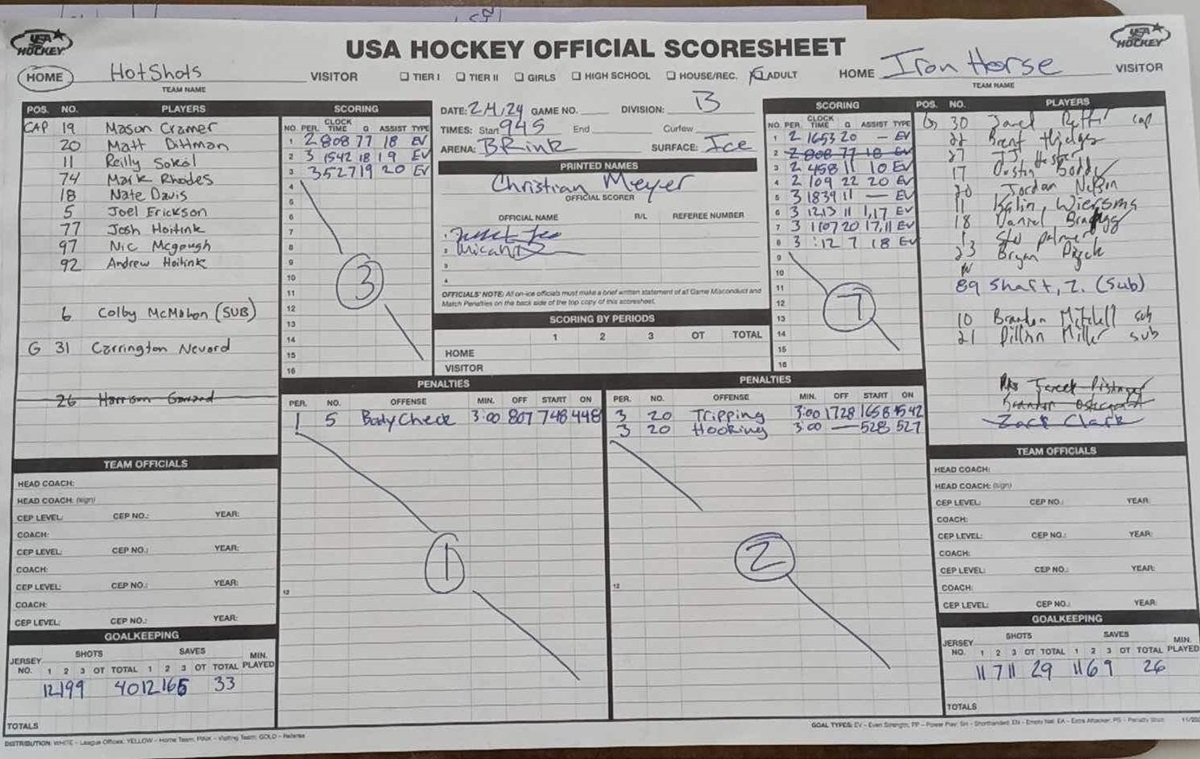 USA HOCKEY
USA HOCKEY OFFICIAL SCORESHEET
USA HOCKEY
HOME HotShots VISITOR
TEAM NAME
TIER I TIER II GIRLS HIGH SCHOOL HOUSE/REC. ADULT
HOME Iron Horse VISITOR
TEAM NAME
POS. NO. PLAYERS
CAP 19 Mason Cramer
20 Matt Dittman
11 Reilly Sokol
74 Mark Rhodes
18 Nate Davis
5 Joel Erickson
77 Josh Hoitink
97 Nic Mcgough
92 Andrew Hoitink
6 Colby McMahon (SUB)
G 31 Carrington Nevard
26 Harrison
SCORING
NO. PER. CLOCK TIME G ASSIST TYPE
1 2 808 77 18 EV
2 3 1542 18 19 EV
3 3 527 19 20 EV
4
5
6
7
8
9
10
11
12
13
14
15
16
3
DATE: 2,4,24 GAME NO. DIVISION: B
TIMES: Start 945 End Curfew
ARENA: BRink SURFACE: Ice
PRINTED NAMES
Christian Meyer
OFFICIAL SCORER
OFFICIAL NAME R/L REFEREE NUMBER
1
2 Micah
3
4
OFFICIALS' NOTE: All on-ice officials must make a brief written statement of all Game Misconduct and
Match Penalties on the back side of the top copy of this scoresheet.
SCORING BY PERIODS
1 2 3 OT TOTAL
HOME
VISITOR
SCORING
NO. PER. CLOCK TIME G ASSIST TYPE
1 2 1653 20 — EV
2 2 808 77 18 EV
3 2 458 11 10 EV
4 2 109 22 20 EV
5 3 1839 11 — EV
6 3 1213 11 1,17 EV
7 3 1107 20 17,11 EV
8 3 :12 7 18 EV
9
10
11
12
13
14
15
16
7
POS. NO. PLAYERS
G 30 cap
22 Brent
27
17 Dustin
20 Jordan Nelson
11 Kalin Wiersma
18 Daniel
1 Palmer
23 Bryan
89 Shaft, Z. (Sub)
10 Brandon Mitchell sub
21 Dillan Miller sub
Zack Clark
PENALTIES
PER. NO. OFFENSE MIN. OFF START ON
1 5 Body Check 3:00 807 748 448
12
1
PENALTIES
PER. NO. OFFENSE MIN. OFF START ON
3 20 Tripping 3:00 1728 1658 1542
3 20 Hooking 3:00 — 528 527
12
2
TEAM OFFICIALS
HEAD COACH:
HEAD COACH: (sign)
CEP LEVEL: CEP NO.: YEAR:
COACH:
CEP LEVEL: CEP NO.: YEAR:
COACH:
CEP LEVEL: CEP NO.: YEAR:
COACH:
CEP LEVEL: CEP NO.: YEAR:
GOALKEEPING
JERSEY NO. SHOTS SAVES MIN. PLAYED
1 2 3 OT TOTAL 1 2 3 OT TOTAL
12 19 9 40 12 16 5 33
TOTALS
TEAM OFFICIALS
HEAD COACH:
HEAD COACH: (sign)
CEP LEVEL: CEP NO.: YEAR:
COACH:
CEP LEVEL: CEP NO.: YEAR:
COACH:
CEP LEVEL: CEP NO.: YEAR:
COACH:
CEP LEVEL: CEP NO.: YEAR:
GOALKEEPING
JERSEY NO. SHOTS SAVES MIN. PLAYED
1 2 3 OT TOTAL 1 2 3 OT TOTAL
11 7 11 29 11 6 9 26
TOTALS
DISTRIBUTION: WHITE - League Offices; YELLOW - Home Team; PINK - Visiting Team; GOLD - Referee
GOAL TYPES: EV - Even Strength, PP - Power Play, SH - Shorthanded, EN - Empty Net, EA - Extra Attacker, PS - Penalty Shot